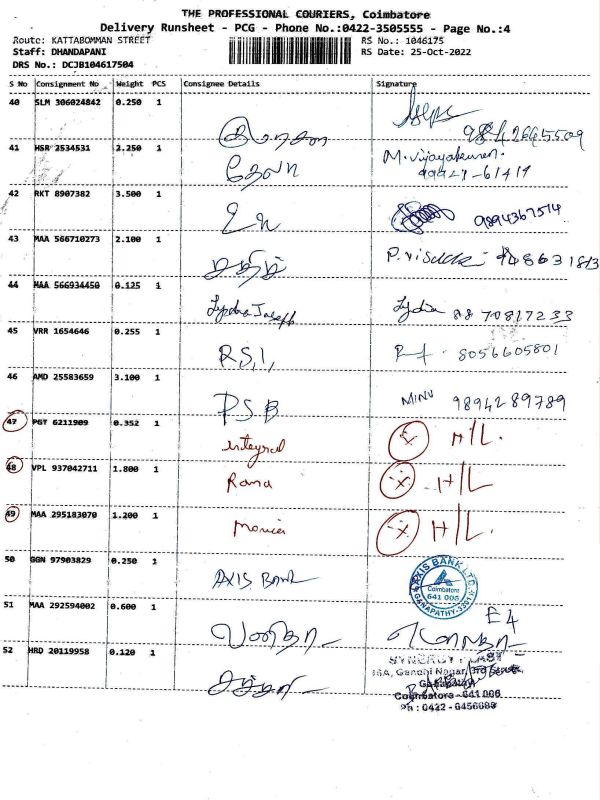 THE PROFESSIONAL COURIERS, Coimbatore
Delivery Runsheet - PCG - Phone No.:0422-3505555 - Page No.:4
Route: KATTABOMMAN STREET
Staff: DHANDAPANI
DRS No.: DCJB104617504
RS No.: 1046175
RS Date: 25-Oct-2022
S No Consignment No Weight PCS Consignee Details Signature
40 SLM 306024842 0.250 1
9842645509
41 HSR 2534531 2.250 1 தேவா M. Vijayakumar.
99421-61419
42 RKT 8907382 3.500 1 உமா 9894367514
43 MAA 566710273 2.100 1 சக்தி P. 948631813
44 MAA 566934450 0.125 1 Lydia Joseph Lydia 88 70817233
45 VRR 1654646 0.255 1 R.S.I, 8056605801
46 AMD 25583659 3.100 1 P.S.B MINU 9894289789
47 PGT 6211909 0.352 1 Integral x H/L
48 VPL 937042711 1.800 1 Rama x H/L
49 MAA 295183070 1.200 1 Monica x H/L
50 GGN 97903829 0.250 1 AXIS BANK AXIS BANK LTD Coimbatore 641 006 GANAPATHY
51 MAA 292594002 0.600 1 வனிதா E4
52 HRD 20119958 0.120 1
16A, Gandhi Nagar, 3rd Street,
Coimbatore - 641 006
Ph : 0422 -